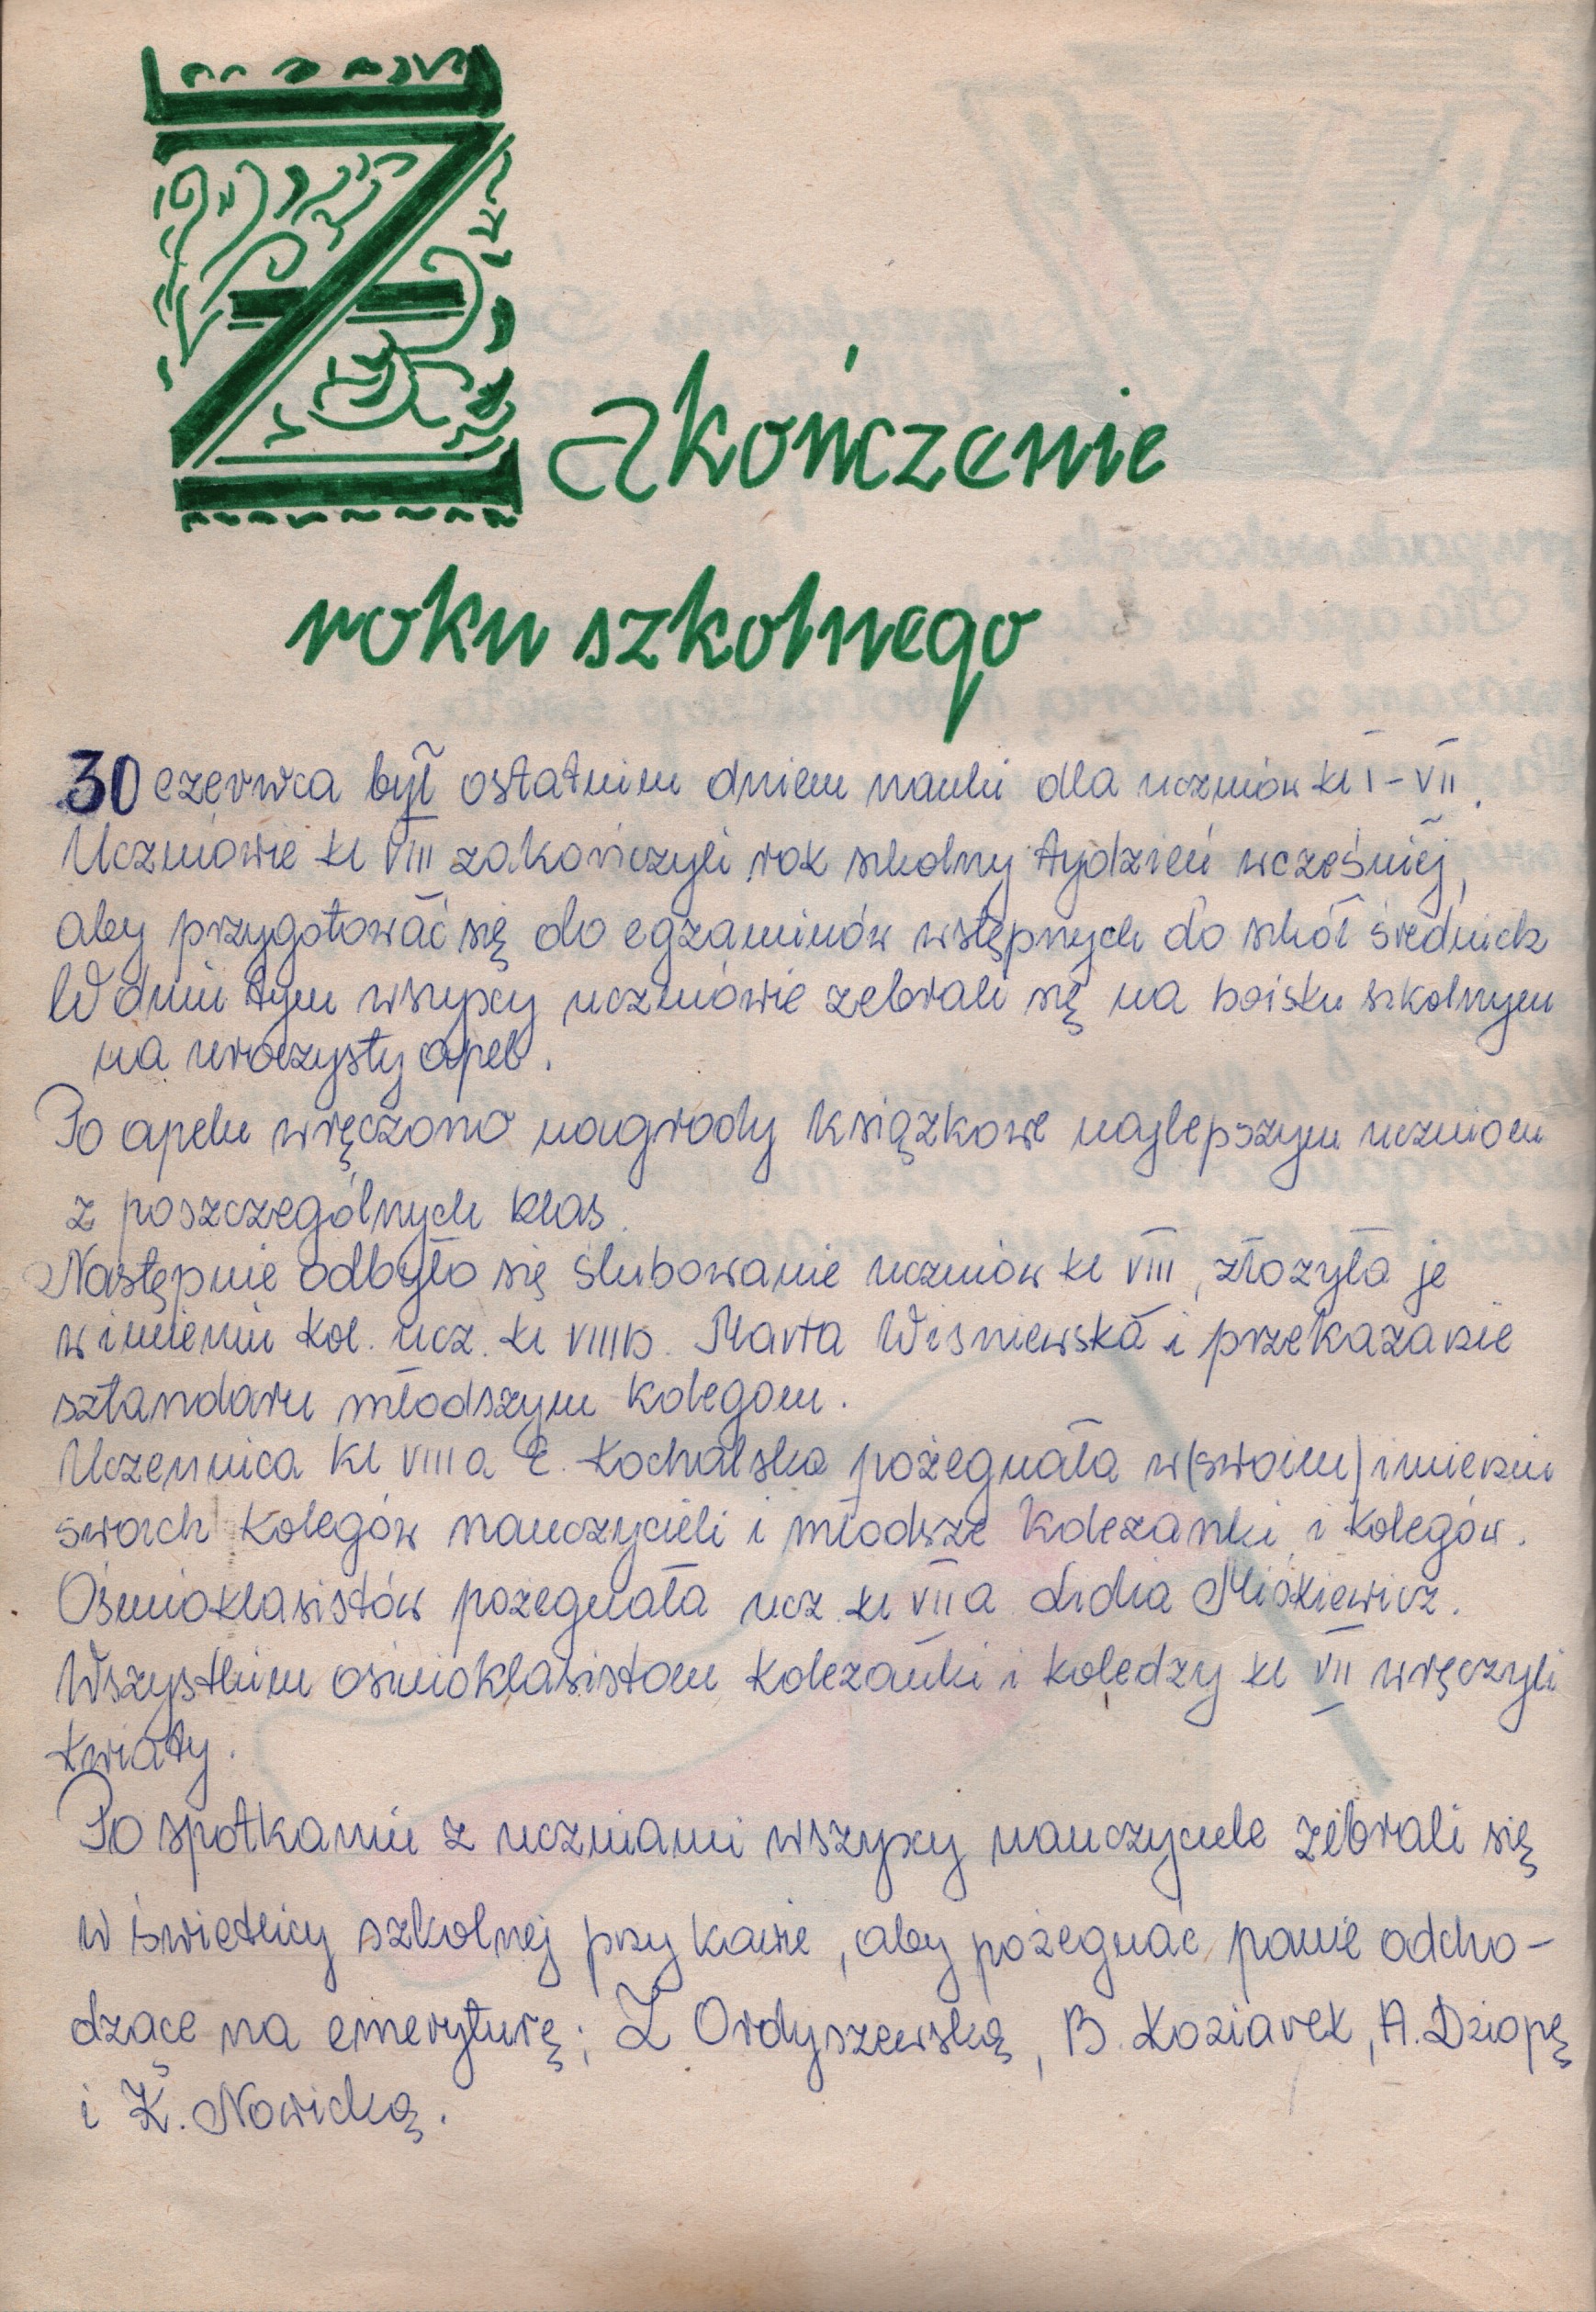 Zakończenie
roku szkolnego
30 czerwca był ostatnim dniem nauki dla uczniów kl I-VII.
Uczniowie kl VIII zakończyli rok szkolny tydzień wcześniej,
aby przygotować się do egzaminów wstępnych do szkół średnich
W dniu tym wszyscy uczniowie zebrali się na boisku szkolnym
na uroczysty apel.
Po apelu wręczono nagrody książkowe najlepszym uczniom
z poszczególnych klas.
Następnie odbyło się ślubowanie uczniów kl VIII, złożyła je
w imieniu kol. ucz. kl VIIIb. Marta Wiśniewska i przekazanie
sztandaru młodszym kolegom.
Uczennica kl VIIIa E. Kochalska pożegnała w(swoim) imieniu
swoich kolegów nauczycieli i młodsze koleżanki i kolegów.
Ośmioklasistów pożegnała ucz kl VIIa Lidia Miśkiewicz.
Wszystkim ośmioklasistom koleżanki i koledzy kl VII wręczyli
kwiaty.
Po spotkaniu z uczniami wszyscy nauczyciele zebrali się
w świetlicy szkolnej przy kawie, aby pożegnać panie odcho-
dzące na emeryturę; Z Ordyszewską, B. Koziarek, A. Dziopę
i K. Nowicką.